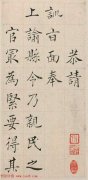 恭請
訓旨面奉
上諭縣令乃親民之
官最為緊要得其